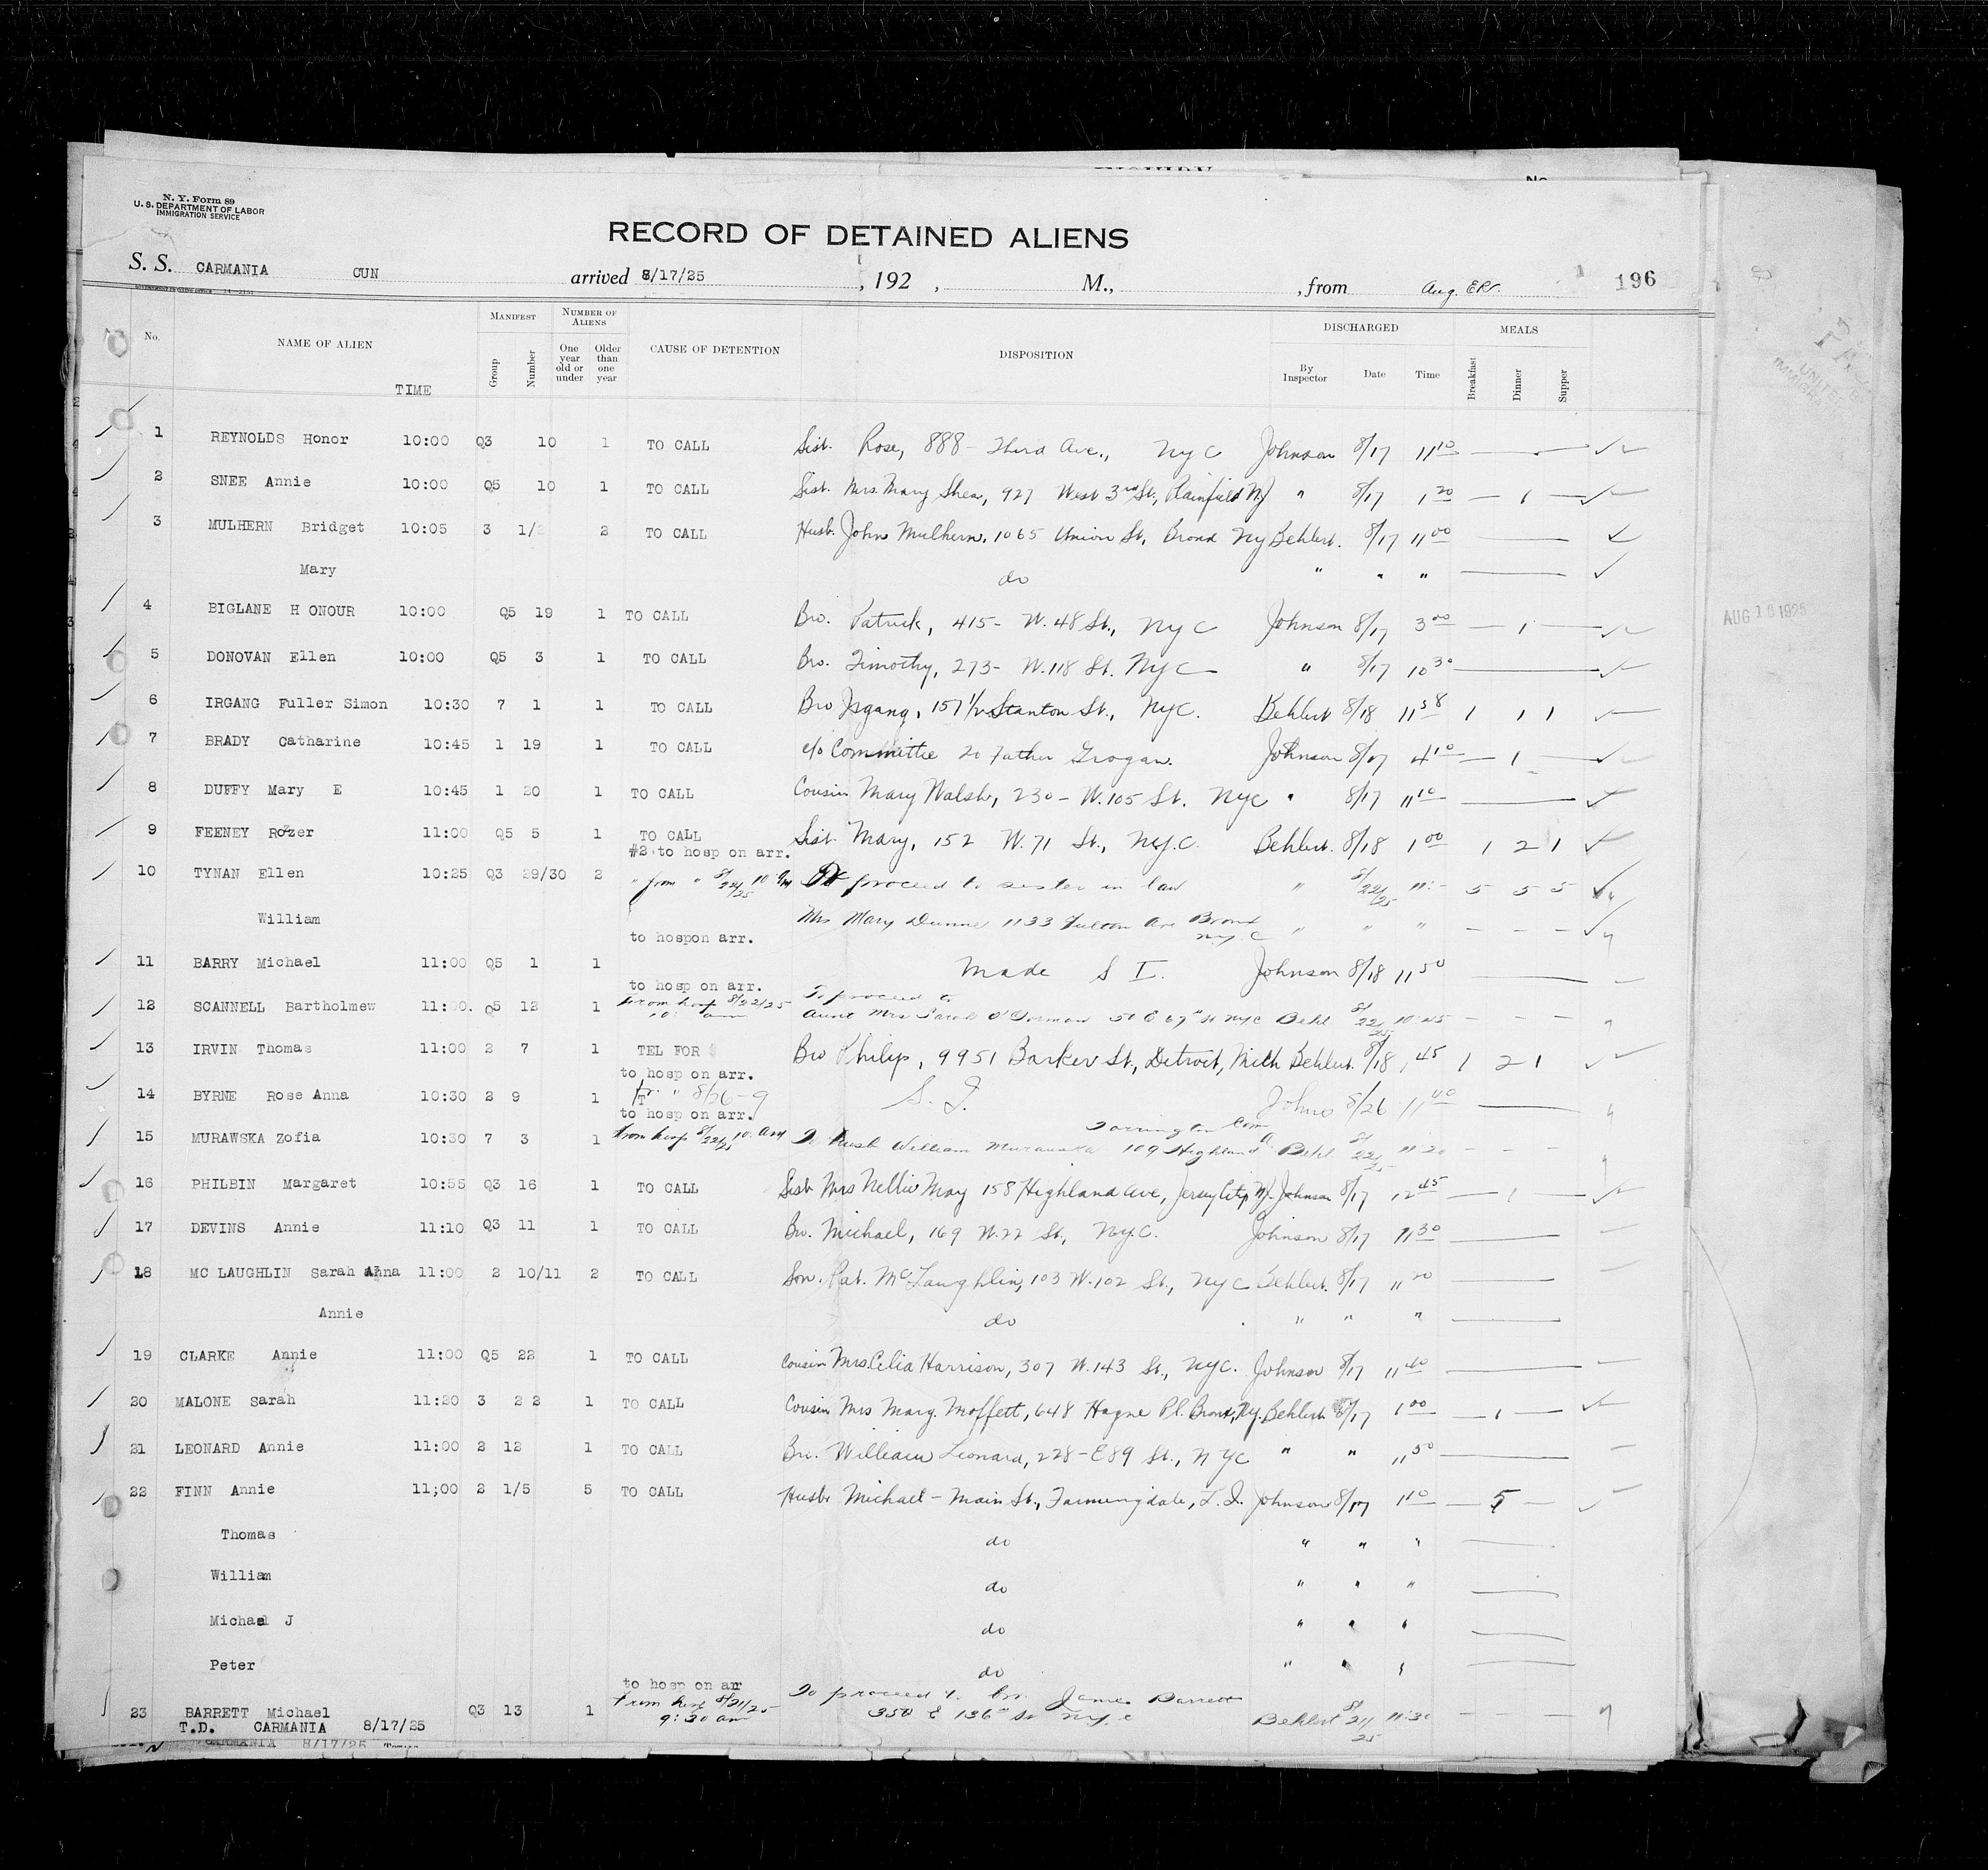 N. Y. Form 89
U. S. DEPARTMENT OF LABOR
IMMIGRATION SERVICE
RECORD OF DETAINED ALIENS
S. S. CARMANIA CUN arrived 8/17/25, 192 , M., , from Aug. 196
No. NAME OF ALIEN TIME MANIFEST Group Number NUMBER OF ALIENS One year old or under Older than one year CAUSE OF DETENTION DISPOSITION DISCHARGED By Inspector Date Time MEALS Breakfast Dinner Supper
1 REYNOLDS Honor 10:00 Q3 10 1 TO CALL Sist. Rose, 888 - Third Ave., NYC Johnson 8/17 11 10
2 SNEE Annie 10:00 Q5 10 1 TO CALL Sist. Mrs. Mary Shea, 927 West 3rd St., Plainfield NJ " 8/17 1 20 — 1 —
3 MULHERN Bridget 10:05 3 1/2 2 TO CALL Husb. John Mulhern, 1065 Union St, Bronx NY Behlert. 8/17 11 00
Mary do " " "
4 BIGLANE H ONOUR 10:00 Q5 19 1 TO CALL Bro. Patrick, 415 - W. 48 St., NYC Johnson 8/17 3 00 — 1 —
5 DONOVAN Ellen 10:00 Q5 3 1 TO CALL Bro. Timothy, 273 - W. 118 St. NYC " 8/17 10 30
6 IRGANG Fuller Simon 10:30 7 1 1 TO CALL Bro Irgang, 157 1/2 Stanton St., NYC. Behlert 8/18 11 58 1 1 1
7 BRADY Catharine 10:45 1 19 1 TO CALL c/o Committee to Father Grogan. Johnson 8/17 4 10 — 1 —
8 DUFFY Mary E 10:45 1 20 1 TO CALL Cousin Mary Walsh, 230 - W. 105 St. NYC " 8/17 11 10
9 FEENEY Rozer 11:00 Q5 5 1 TO CALL Sist. Mary, 152 W. 71 St., NY.C. Behlert. 8/18 1 00 1 2 1
#2 to hosp on arr.
10 TYNAN Ellen 10:25 Q3 29/30 2 " from " 8/22/25 10 AM To proceed to sister in law " 8/22/25 11:- 5 5 5
William Mrs Mary Dunne 1133 Fulton Ave Bronx NY C " " " - - -
to hospon arr.
11 BARRY Michael 11:00 Q5 1 1 Made S I. Johnson 8/18 11 50
to hosp on arr.
12 SCANNELL Bartholmew 11:00. Q5 12 1 From hosp 8/22/25 10: am To proceed to Aunt Mrs Sarah O'Gorman 51 E 67th St NYC Behl 8/22/25 10:45 - - -
13 IRVIN Thomas 11:00 2 7 1 TEL FOR Bro Philip, 9951 Barker St., Detroit, Mich Behlert. 8/18 1 45 1 2 1
to hosp on arr.
14 BYRNE Rose Anna 10:30 2 9 1 fr. " 8/26 - 9 S. I. Johns 8/26 11 40
to hosp on arr.
15 MURAWSKA Zofia 10:30 7 3 1 from hosp 8/22/25 10. AM To Husb William Murawska 109 Highland A Torrington Conn Behl. 8/22/25 11:20 - - -
16 PHILBIN Margaret 10:55 Q3 16 1 TO CALL Sist Mrs Nellie May 158 Highland Ave, Jersey City NJ. Johnson 8/17 12 45 — 1 —
17 DEVINS Annie 11:10 Q3 11 1 TO CALL Bro. Michael, 169 W. 22 St., NY.C. Johnson 8/17 11 30
18 MC LAUGHLIN Sarah Anna 11:00 2 10/11 2 TO CALL Son. Pat. McLaughlin, 103 W. 102 St., NYC Behlert. 8/17 11 20
Annie do " " "
19 CLARKE Annie 11:00 Q5 22 1 TO CALL Cousin Mrs. Celia Harrison, 307 W. 143 St., NYC. Johnson 8/17 11 40
20 MALONE Sarah 11:20 3 2 2 1 TO CALL Cousin Mrs Marg. Moffett, 648 Hagne Pl. Bronx, NY. Behlert 8/17 1 00 — 1 —
21 LEONARD Annie 11:00 2 12 1 TO CALL Bro. William Leonard, 228 - E 89 St., N YC " " 11 50
22 FINN Annie 11;00 2 1/5 5 TO CALL Husb. Michael - Main St., Farmingdale, L. I. Johnson 8/17 1 10 — 5 —
Thomas do " " "
William do " " "
Michael J do " " "
Peter do " " "
to hosp on arr
23 BARRETT Michael Q3 13 1 From hosp 8/21/25 9:30 am To proceed to bro. James Barrett 350 E 136th St NY. C Behlert 8/21/25 11:30 - - -
T.D. CARMANIA 8/17/25
CARMANIA 8/17/25
AUG 18 1925